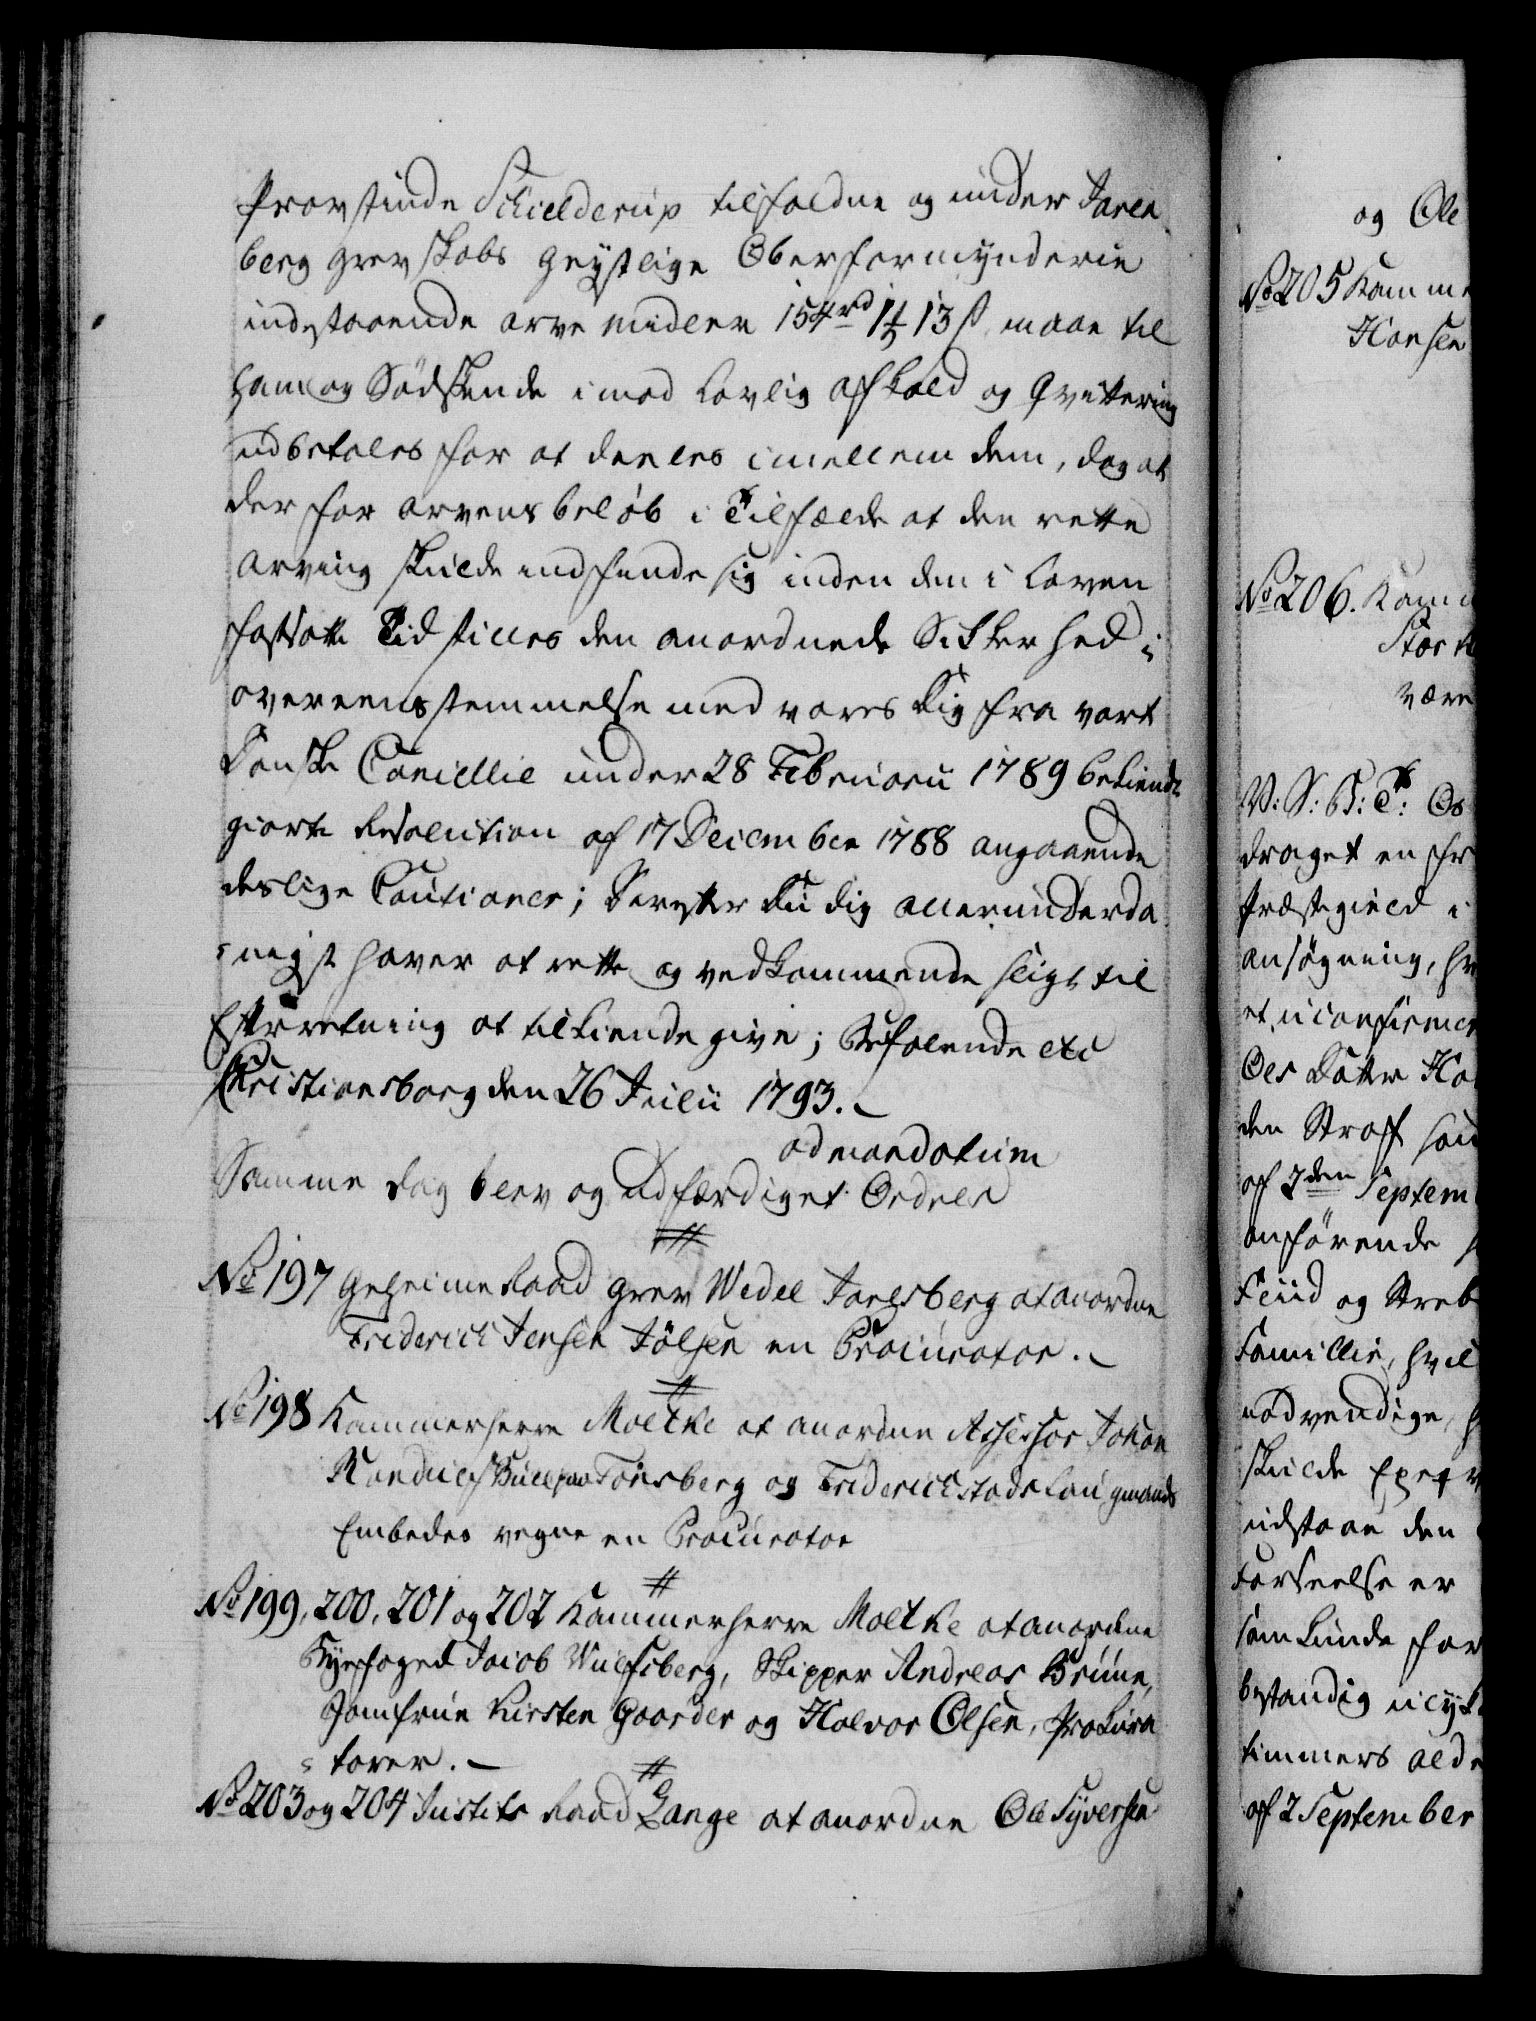 Provstinde Schielderup tilfaldne og under Jarls
berg Grevskabs Geistlige Oberformynderie
indestaaende arve midler 154 rd 1 ꝉ 13 ß maae til
ham og Södskende imod lovlig afkald og Qvittering
udbetales for at deeles imellem dem, dog at
der for arvens beløb i Tilfælde at den rette
arving skulde indfinde sig inden den i Loven
fastsatte Tid stilles den anordnede Sikkerhed i
overeensstemmelse med vores Dig fra vort
Danske Cancellie under 28 Februarii 1789 bekiendt
giorte Resolution af 17 December 1788 angaaende
deslige Cautioner; Derefter Du dig allerunderda
nigst haver at rette og vedkommende sligt til
Efterretning at tilkiende give; Befalende etc
Christiansborg den 26 Julii 1793.
ad mandatum
Samme dag blev og udfærdiget Ordres
No 197 Geheime Raad Grev Wedel Jarlsberg at anordne
Friderich Jensen Jölsen en Procurator.
No 198 Kammerherre Moltke at anordne Assessor Johan
Randulf Bull paa Tonsberg og Friderichstads Laugmands
Embedes vegne en Procurator
No 199, 200, 201 og 202 Kammerherre Moltke at anordne
Byefoged Jacob Wulfsberg, Skipper Andreas Bruun,
Jomfrue Kirsten Gaarder og Halvor Olsen, Prokura
torer.
No 203 og 204 Justits Raad Lange at anordne Ole Syversen
og Ole
No 205 Kamme
Hansen
No 206. Kam
være
V: S: B: T: Os
draget en
Præstegield i
ansøgning,
et uconfirmer
Oles Datter
den Straf
af 7den Septem
anförende
Fliid og Streb
Familie,
nødvendige,
skulde
udstaae den
Forseelse er
som kunde for
bestandig
timmers
af 2 September